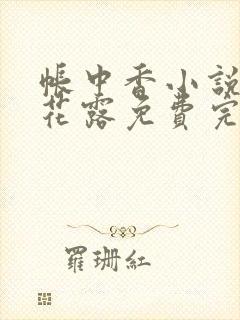 帳中香小說
花露免費完
羅珊紅